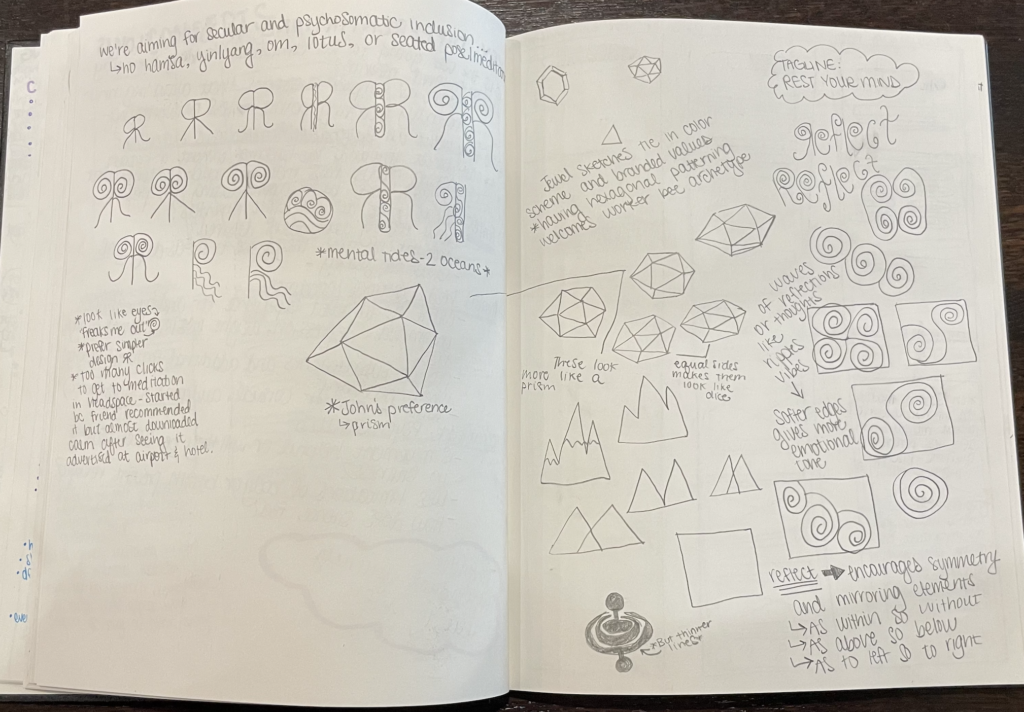 we're aiming for secular and psychosomatic inclusion
↳ no hamsa, yin/yang, om, lotus, or seated pose/medit
*mental tides-2 oceans*
*look like eyes
"Freaks me out"
*prefer simpler
design
*Too many clicks
to get to meditation
in headspace-started
bc friend recommended
it but almost downloaded
calm after seeing it
advertised at airport & hotel.
*John's preference
↳ prism
C
TAGLINE:
REST YOUR MIND
reflect
Reflect
Jewel sketches tie in color
scheme and branded values
*having hexagonal patterning
welcomes worker bee archetype
waves
of reflections
or thoughts
like
ripples
vibes
These look
more like a
prism
equal sides
makes them
look like
dice
softer edges
gives more
emotional
care
*But thinner
lines*
reflect ➡ encourages symmetry
and mirroring elements
↳ As within so without
↳ As above so below
↳ As to left so to right